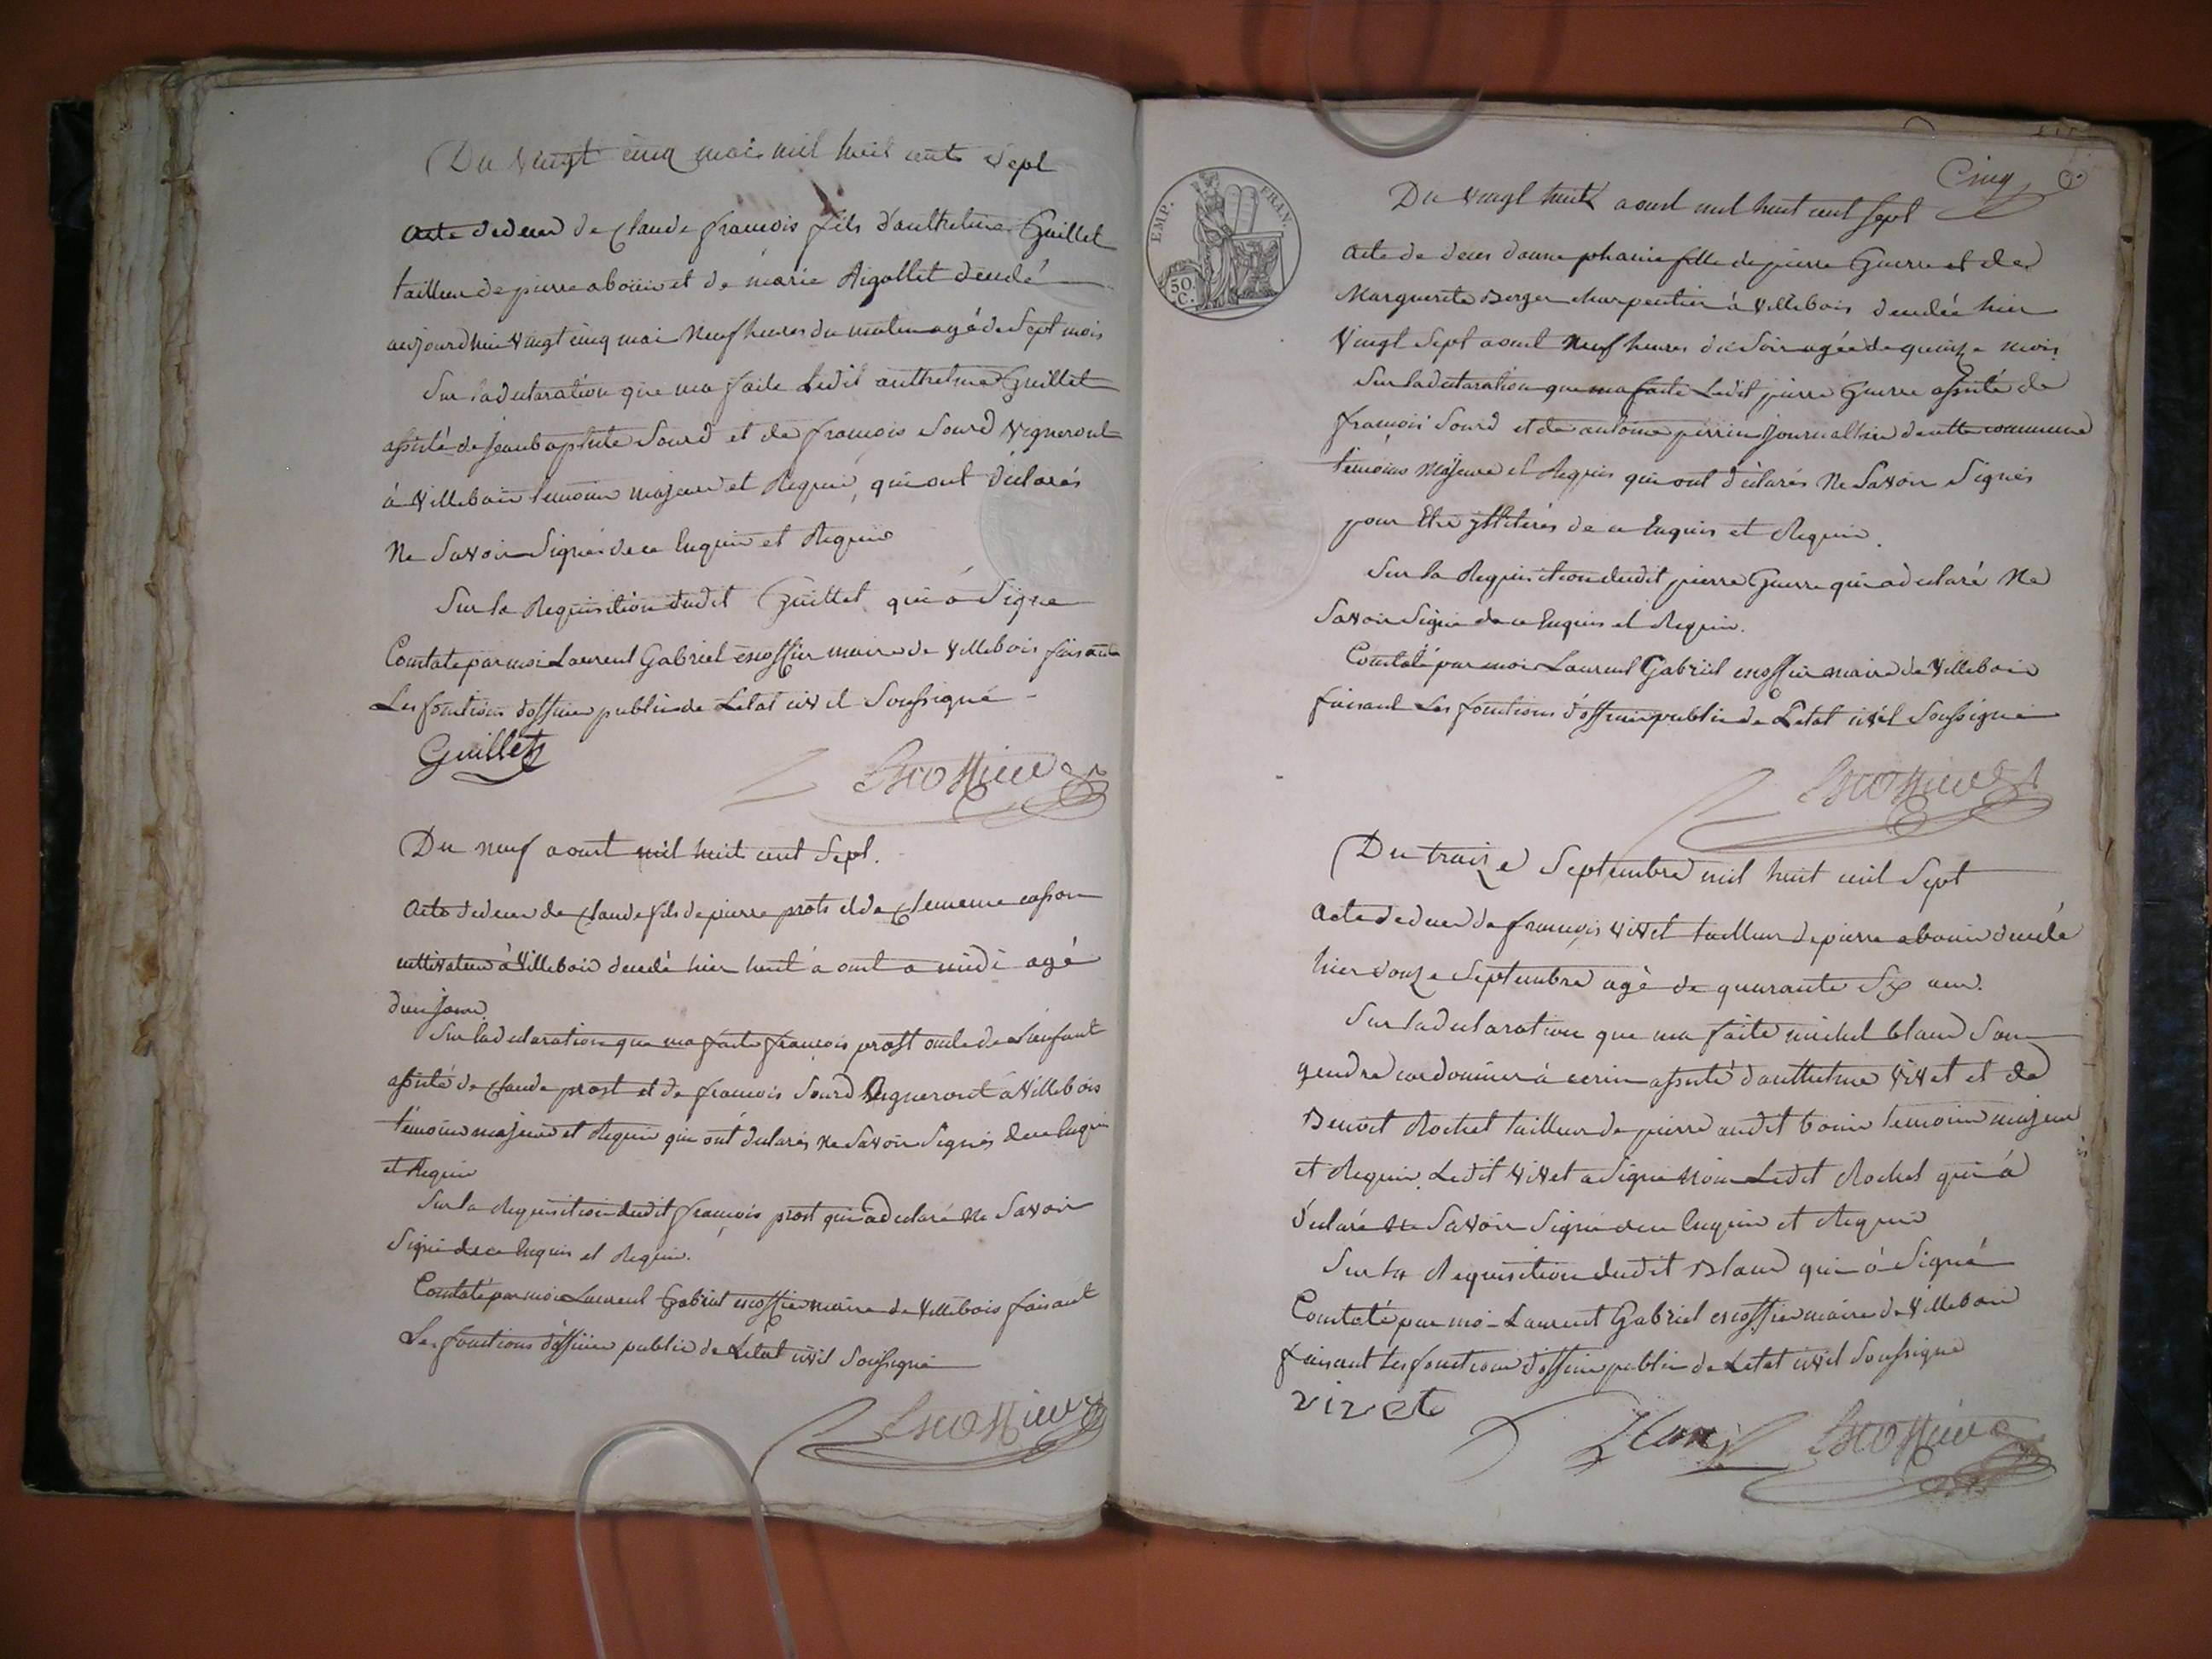 Du vingt cinq mai mil huit cent sept
acte de deces de Claude françois fils d'anthelme Guillet
tailleur de pierre a bouis et de marie Rigollet décédé
aujourd'hui vingt cinq mai neuf heures du matin agé de sept mois
Sur la declaration que ma faite Ledit anthelme Guillet
assisté de jean baptiste Sourd et de françois Sourd vigneront
à Villebois temoins majeurs et Requis, qui ont déclarés
Ne Savoir Signés de ce Enquis et Requis
Sur la Requisition dudit Guillet qui a Signe
Constaté par moi Laurent Gabriel escoffier maire de Villebois faisant
Les fonctions d'officier public de Letat civil Soussigné
Guillet
Escoffier
Du neuf aoust mil huit cent Sept.
acte de deces de Claude fils de pierre prots et de Clemence casson
cultivateur à Villebois decedé hier huit aout a midi agé
d'un jour
Sur la declaration que ma faite françois prost oncle de L'enfant
assisté de Claude prost et de françois Sourd Vigneront a Villebois
témoins majeurs et Requis qui ont déclarés ne Savoir Signés de ce Enquis
et Requis
Sur la Requisition dudit françois prost qui a declaré Ne Savoir
Signé de ce Enquis et Requis.
Constaté par moi Laurent Gabriel escoffier maire de Villebois faisant
Les fonctions d'officier public de Létat civil Soussigné
Escoffier
Cinq
EMP. FRAN.
50. C.
Du vingt huit aoust mil huit cent sept
acte de deces phanie fille de pierre Guerre et de
Marguerite Berger charpentier à Villebois decedée hier
Vingt Sept aout Neuf heures du Soir agée de quinze mois
Sur la declaration que ma faite Ledit pierre Guerre assisté de
françois Sourd et de antoine perrin journallier de cette commune
témoins Majeurs et Requis qui ont déclarés Ne Savoir Signés
pour Etre de ce Enquis et Requis.
Sur la Requisition dudit pierre Guerre qui a declaré Ne
Savoir Signé de ce Enquis et Requis.
Constaté par moi Laurent Gabriel escoffier maire de Villebois
faisant Les fonctions d'officier public de Letat civil Soussigné
Escoffier
Du traize Septembre mil huit cent Sept
acte de deces de françois vivet tailleur de pierre a bouis decedé
hier douze Septembre agé de quarante Six ans.
Sur la declaration que ma faite michel blanc Son
gendre cordonnier à cerin assisté d'anthelme Vivet et de
Benoit Rochet tailleur de pierre audit bouis temoins majeurs
et Requis, Ledit Vivet a Signé Non Ledit Rochet qui a
déclaré Ne Savoir Signé de ce Enquis et Requis
Sur la Requisition dudit Blanc qui a Signé
Constaté par moi Laurent Gabriel escoffier maire de Villebois
faisant Les fonctions d'officier public de Letat civil Soussigné
vivet
Escoffier